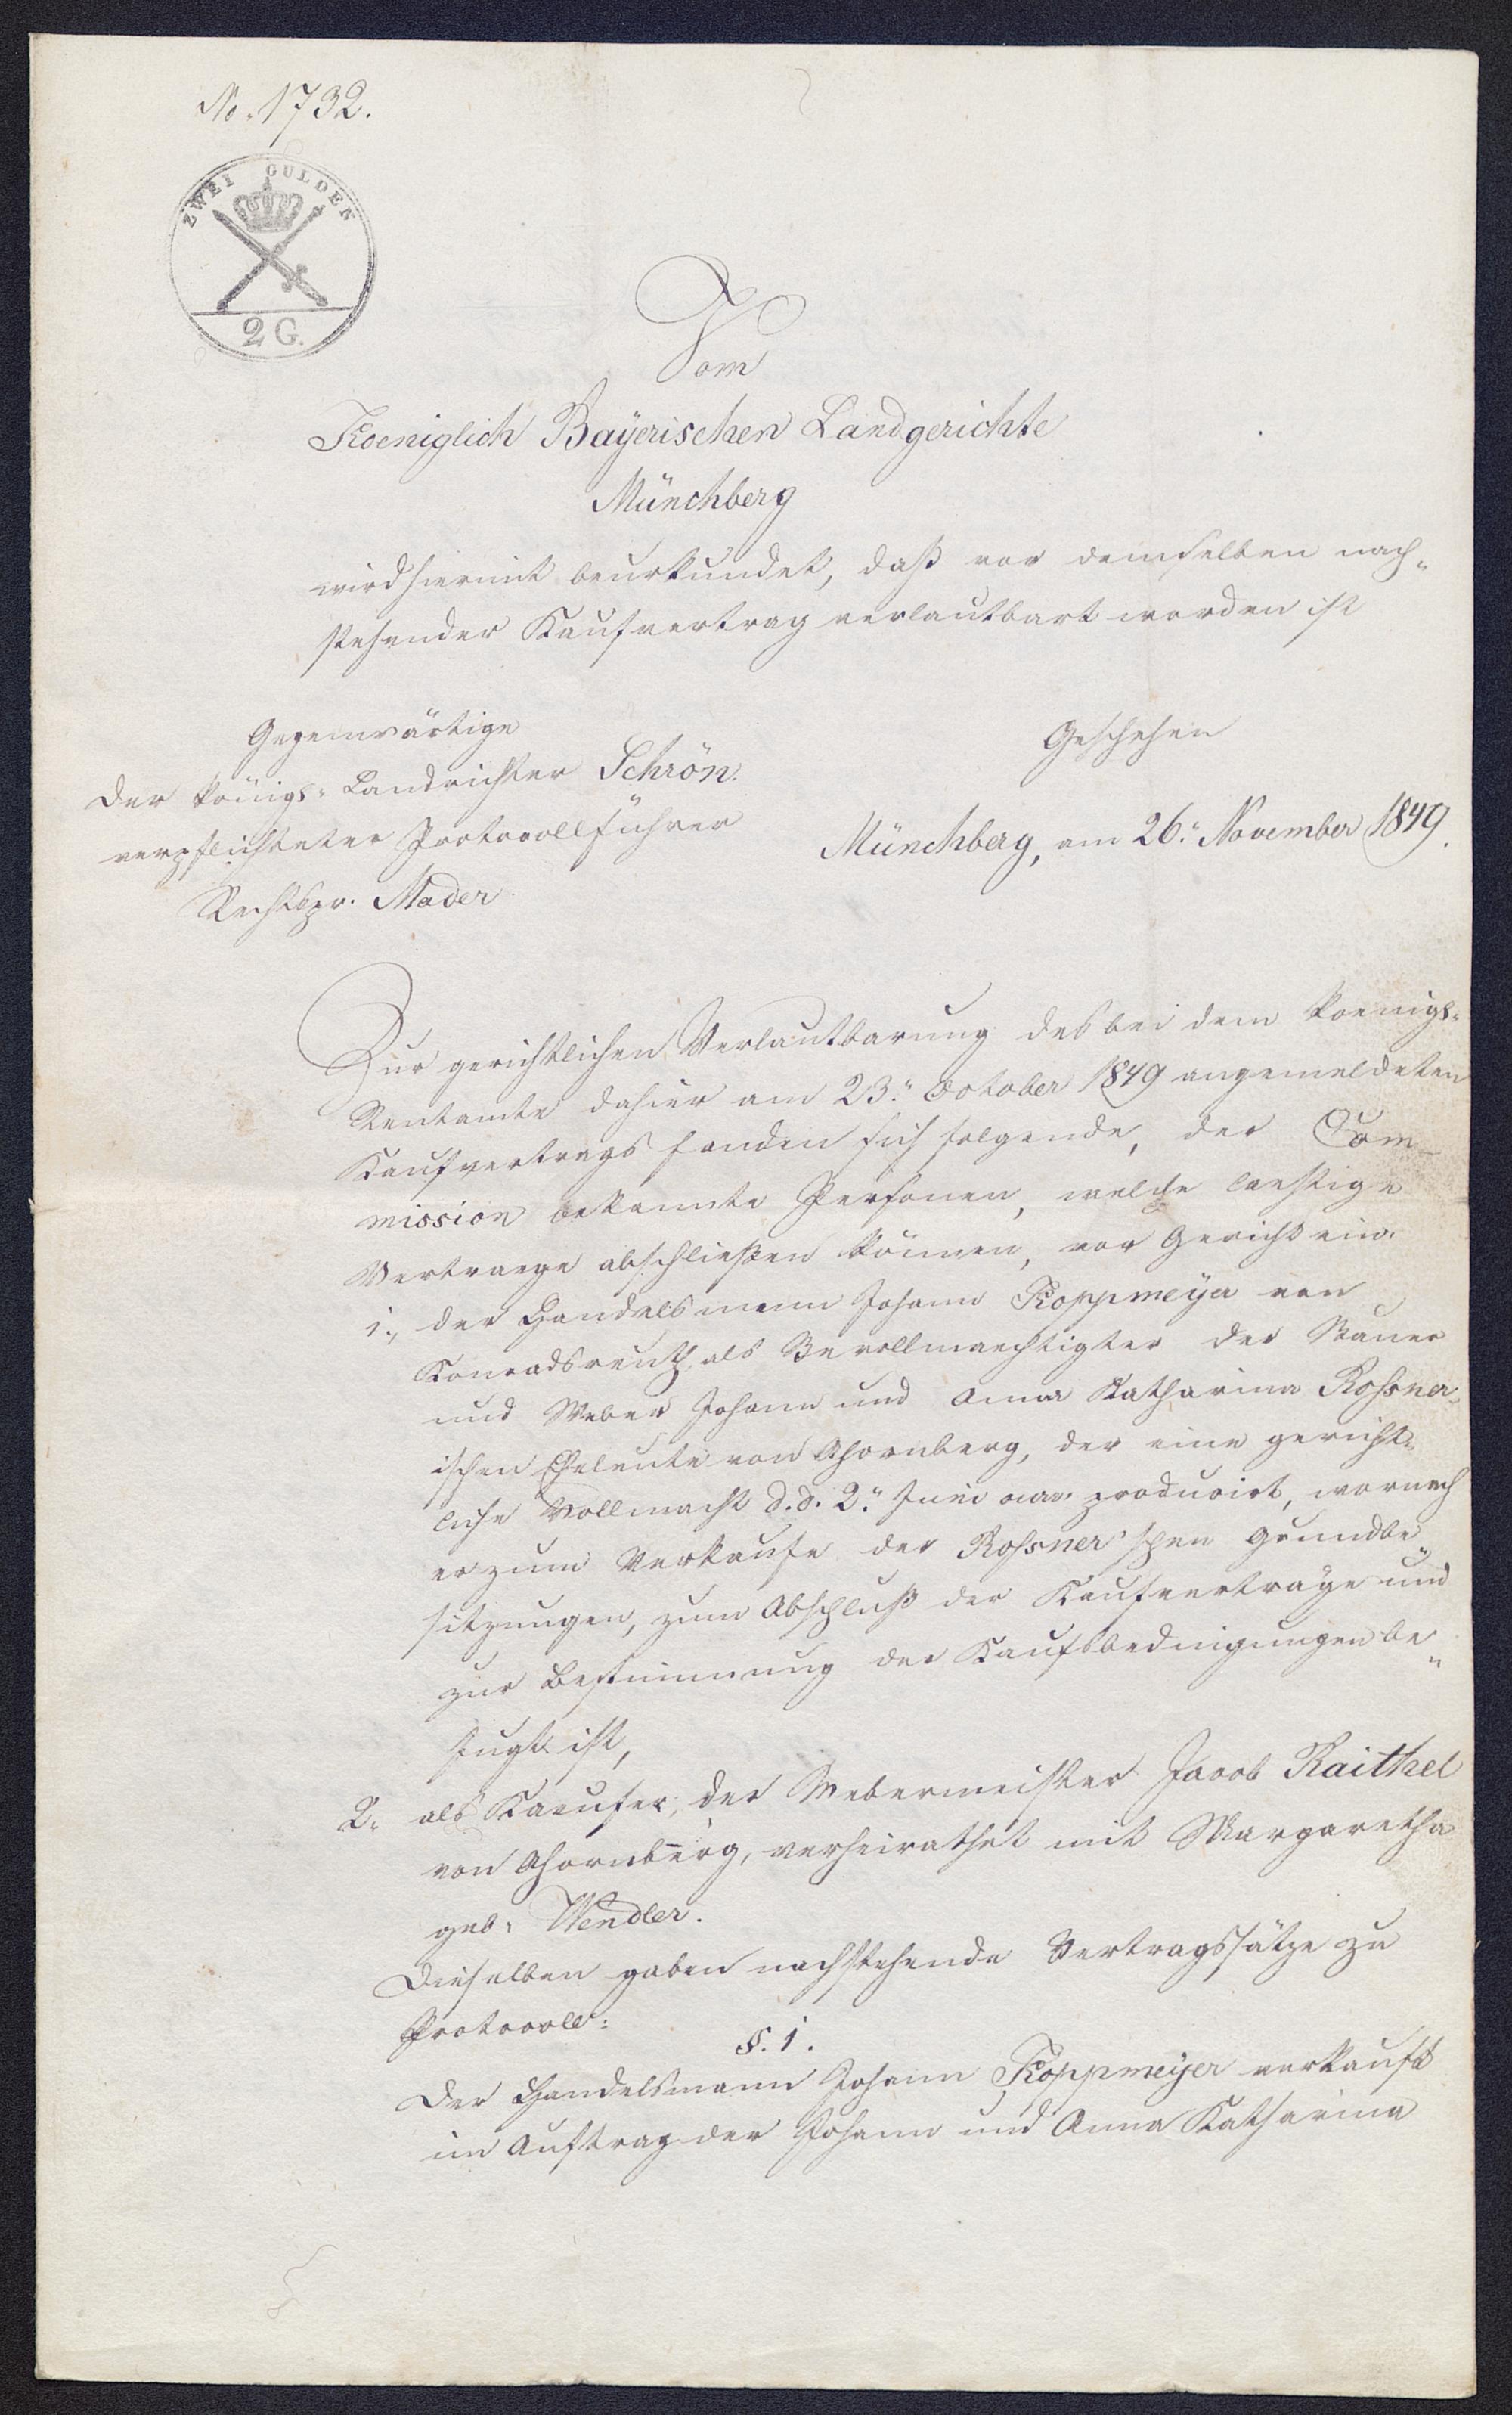 No. 1732.
ZWEI GULDEN
2 G.
Vom
Koeniglich Bayerischen Landgerichte
Münchberg
wird hiermit beurkundet, daß vor demselben nach„
stehender Kaufvertrag verlautbart worden ist
Gegenwärtige
der königl: Landrichter Schrön.
verpflichteter Protocollführer
Rechtspr. Mader
Geschehen
Münchberg, am 26." November 1849.
Zur gerichtlichen Verlautbarung des bei dem koenigl:
Rentamte dahier am 23." October 1849 angemeldeten
Kaufvertrags fanden sich folgende, der Com„
mission bekannte Personen, welche laestige
Vertraege abschließen können, vor Gericht ein:
1., der Handelsmann Johann Koppmeyer von
Konradsreuth, als Bevollmaechtigter der Bauer
und Weber Johann und Anna Katharina Rossner„
ischen Eheleute von Ahornberg, der eine gericht„
liche Vollmacht d. d. 2." Juni producirt, wornach
er zum Verkaufe der Rossner'schen Grundbe„
sitzungen, zum Abschluß der Kaufverträge und
zur Bestimmung der Kaufsbedingungen be„
fugt ist,
2. als Kaeufer, der Webermeister Jacob Raithel
von Ahornberg, verheirathet mit Margaretha
geb: Wendler.
Dieselben gaben nachstehende Vertragssätze zu
Protocoll:
§. 1.
Der Handelsmann Johann Koppmeyer verkauft
im Auftrag der Johann und Anna Katharina